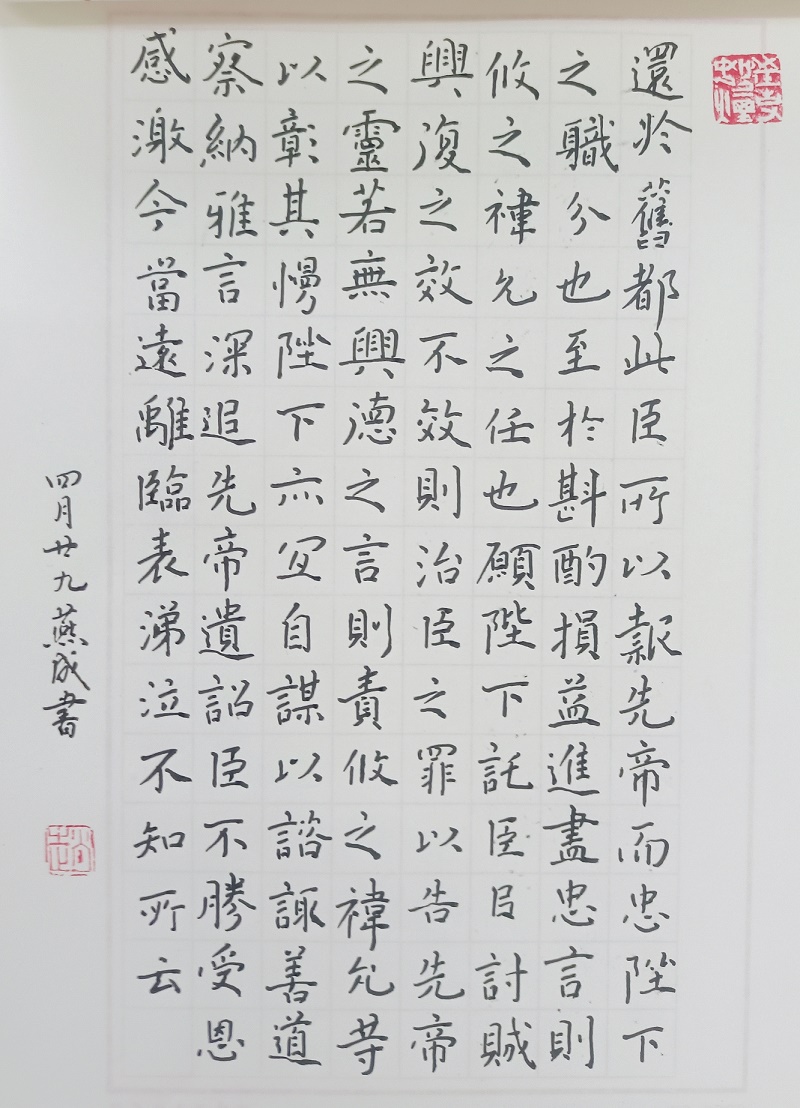 還於舊都此臣所以報先帝而忠陛下
之職分也至於斟酌損益進盡忠言則
攸之禕允之任也願陛下託臣㠯討賊
興復之效不效則治臣之罪以告先帝
之靈若無興德之言則責攸之禕允等
以彰其慢陛下亦宜自謀以諮諏善道
察納雅言深追先帝遺詔臣不勝受恩
感激今當遠離臨表涕泣不知所云
四月廿九燕成書